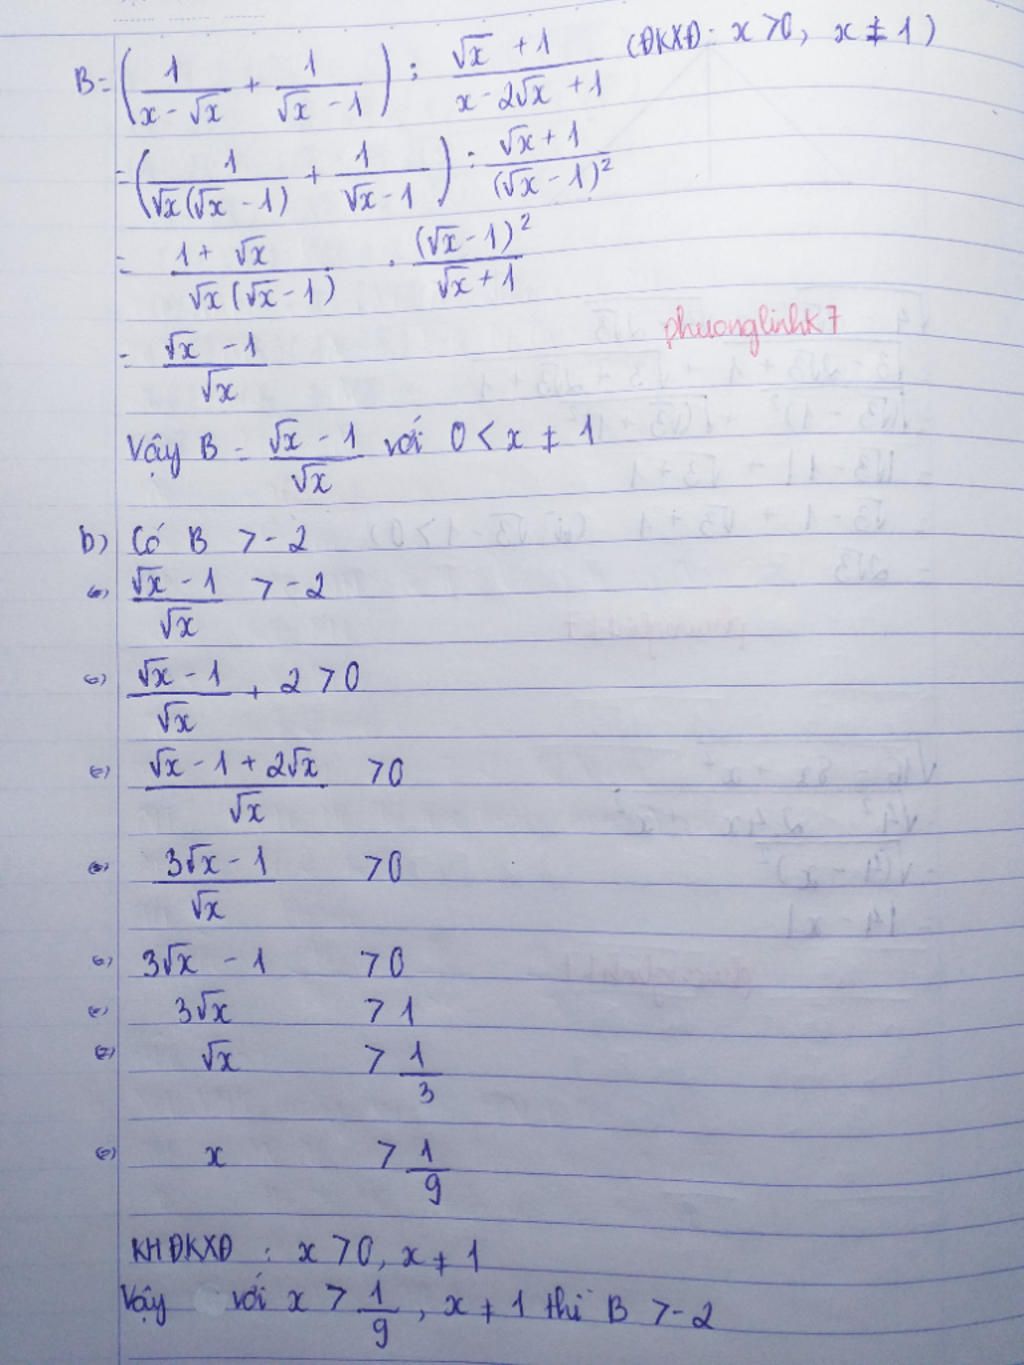 B = (1/(x - √x) + 1/(√x - 1)) : (√x + 1)/(x - 2√x + 1) (ĐKXĐ: x > 0, x ≠ 1)
= (1/(√x(√x - 1)) + 1/(√x - 1)) : (√x + 1)/(√x - 1)²
= (1 + √x)/(√x(√x - 1)) . (√x - 1)²/(√x + 1)
phuonglinhk7
= (√x - 1)/√x
Vậy B = (√x - 1)/√x với 0 < x ≠ 1
b) Có B > -2
⇔ (√x - 1)/√x > -2
⇔ (√x - 1)/√x + 2 > 0
⇔ (√x - 1 + 2√x)/√x > 0
⇔ (3√x - 1)/√x > 0
⇔ 3√x - 1 > 0
⇔ 3√x > 1
⇔ √x > 1/3
⇔ x > 1/9
KHĐKXĐ : x > 0, x ≠ 1
Vậy với x > 1/9, x ≠ 1 thì B > -2